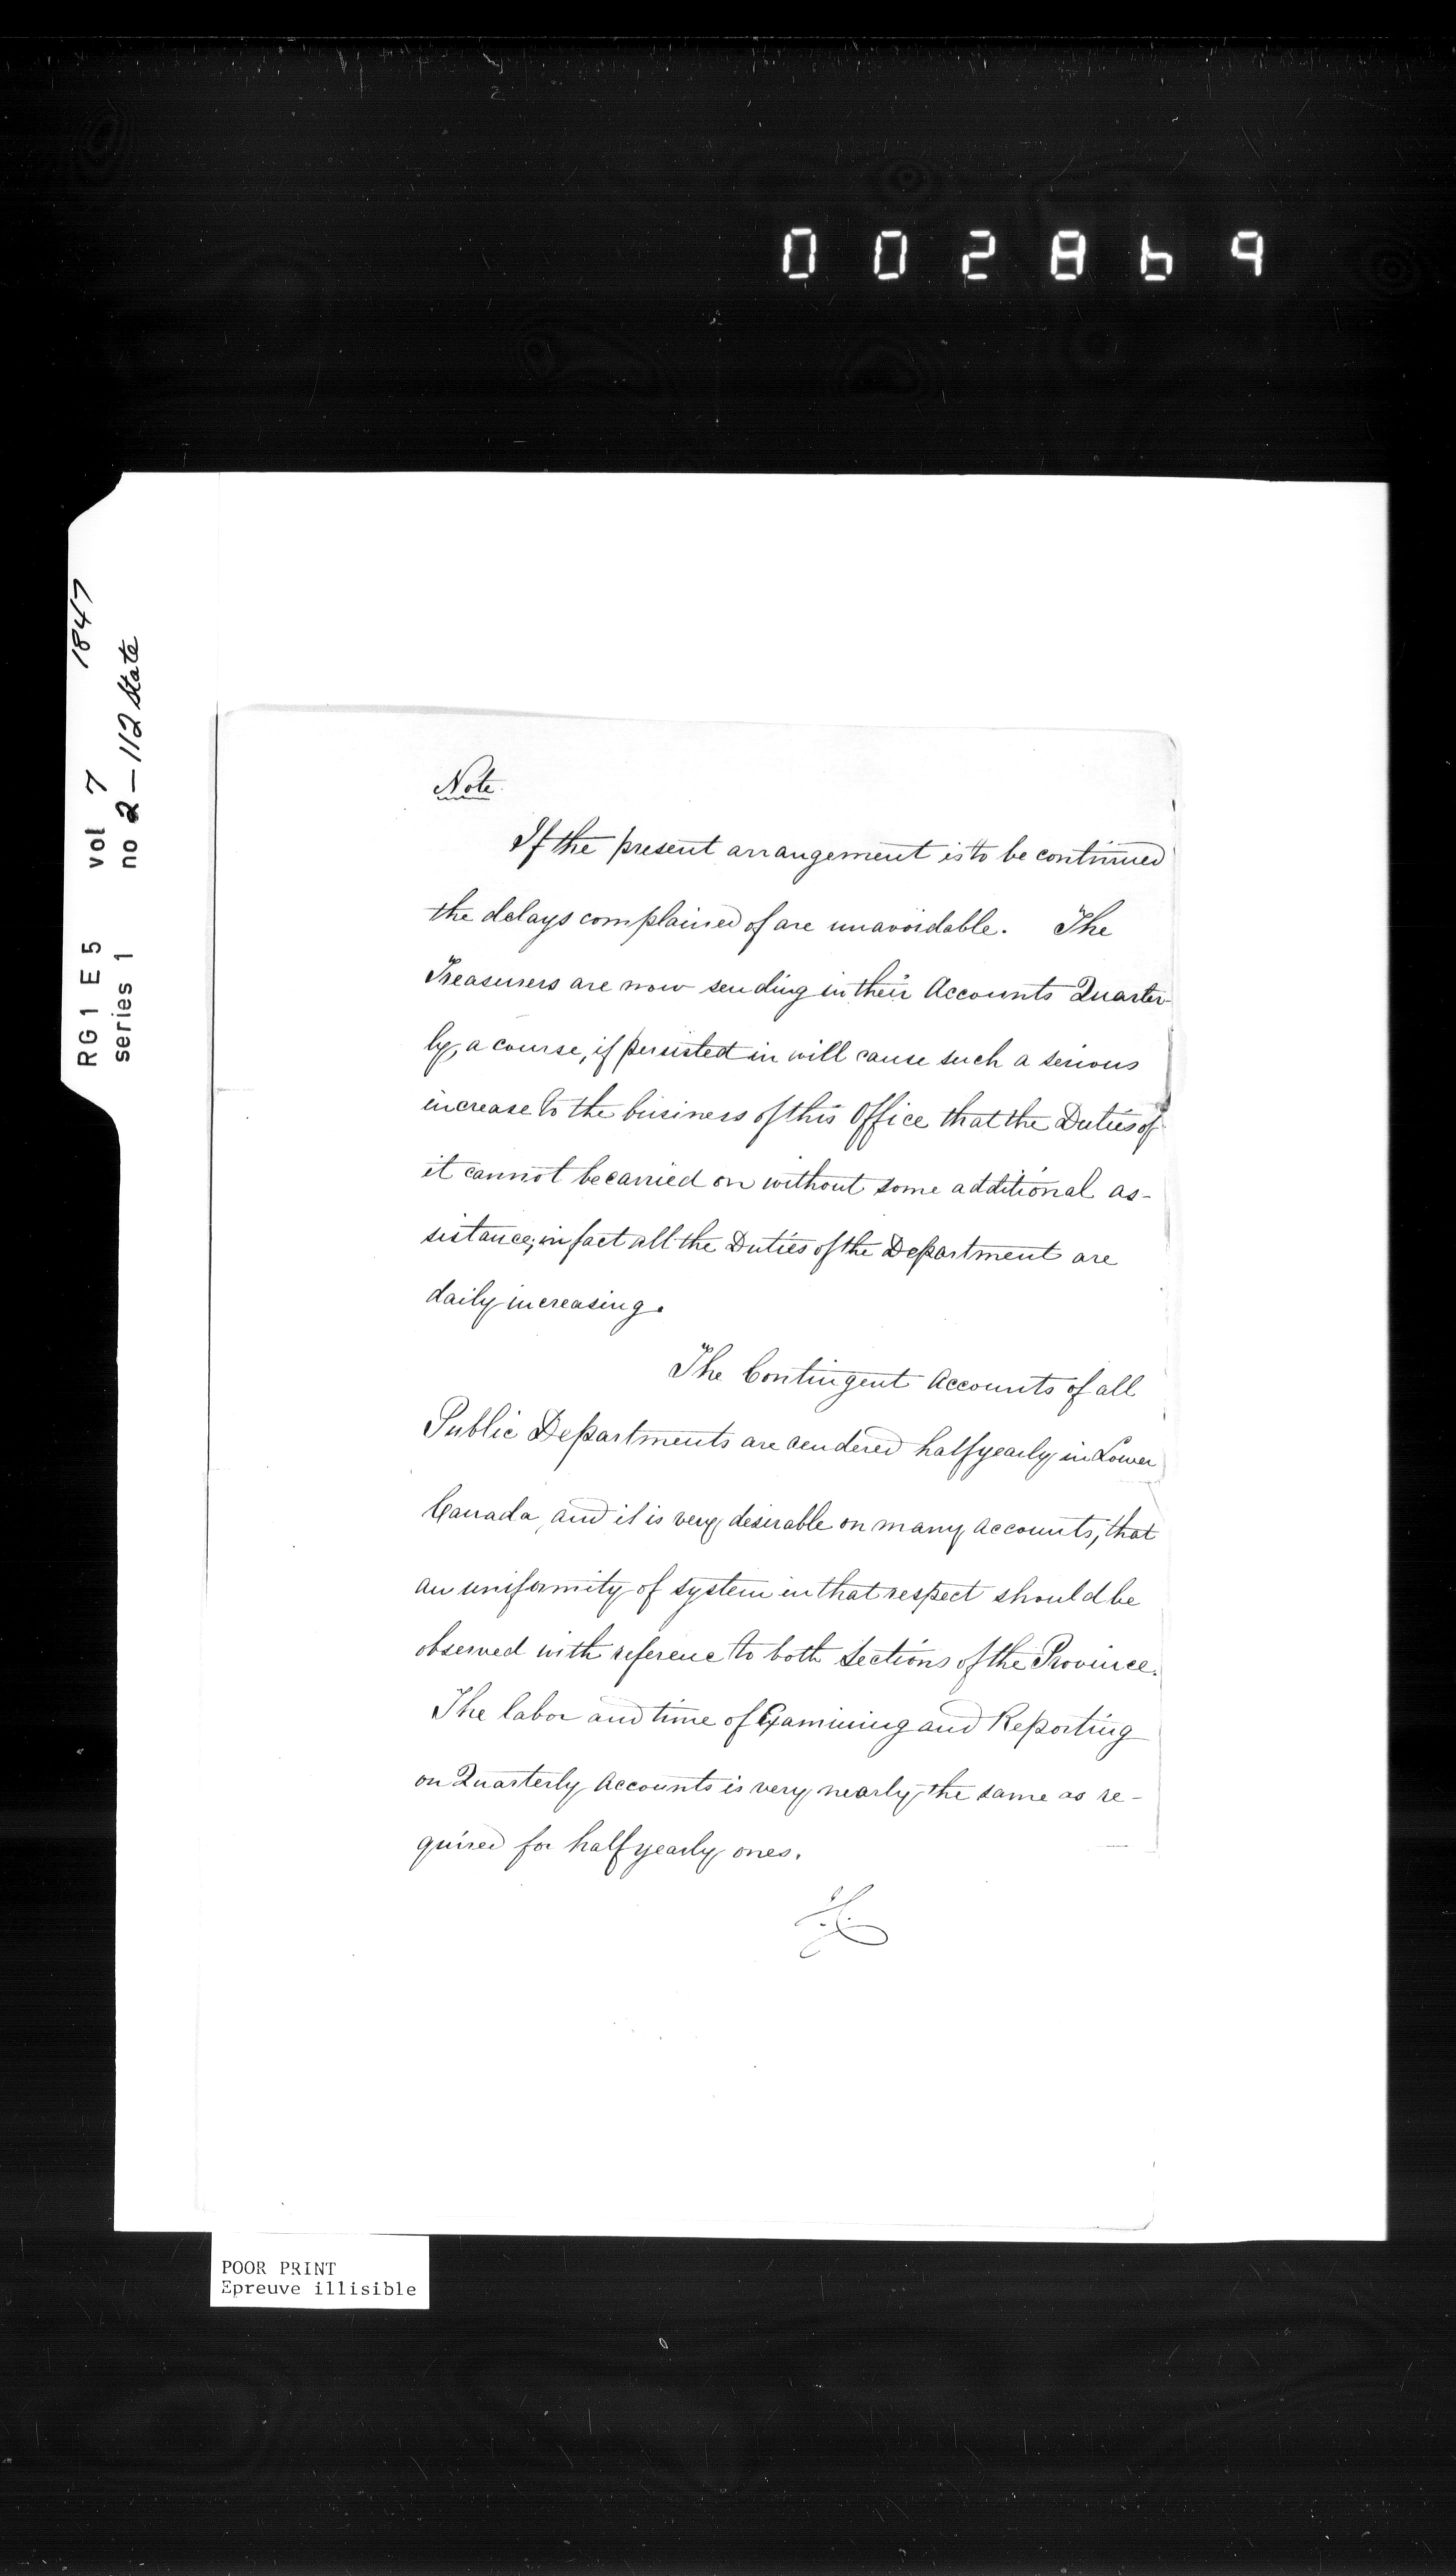 002869
RG1 E5 vol 7 1847
series 1 no 2-112 State
Note
If the present arrangement is to be continued
the delays complained of are unavoidable. The
Treasurers are now sending in their Accounts Quarter-
ly, a course, if persisted in will cause such a serious
increase to the business of this Office that the Duties of
it cannot be carried on without some additional as-
sistance; in fact all the Duties of the Department are
daily increasing.
The Contingent Accounts of all
Public Departments are rendered half yearly in Lower
Canada, and it is very desirable on many accounts, that
an uniformity of system in that respect should be
observed with reference to both Sections of the Province.
The labor and time of Examining and Reporting
on Quarterly Accounts is very nearly the same as re-
quired for half yearly ones.
POOR PRINT
Epreuve illisible